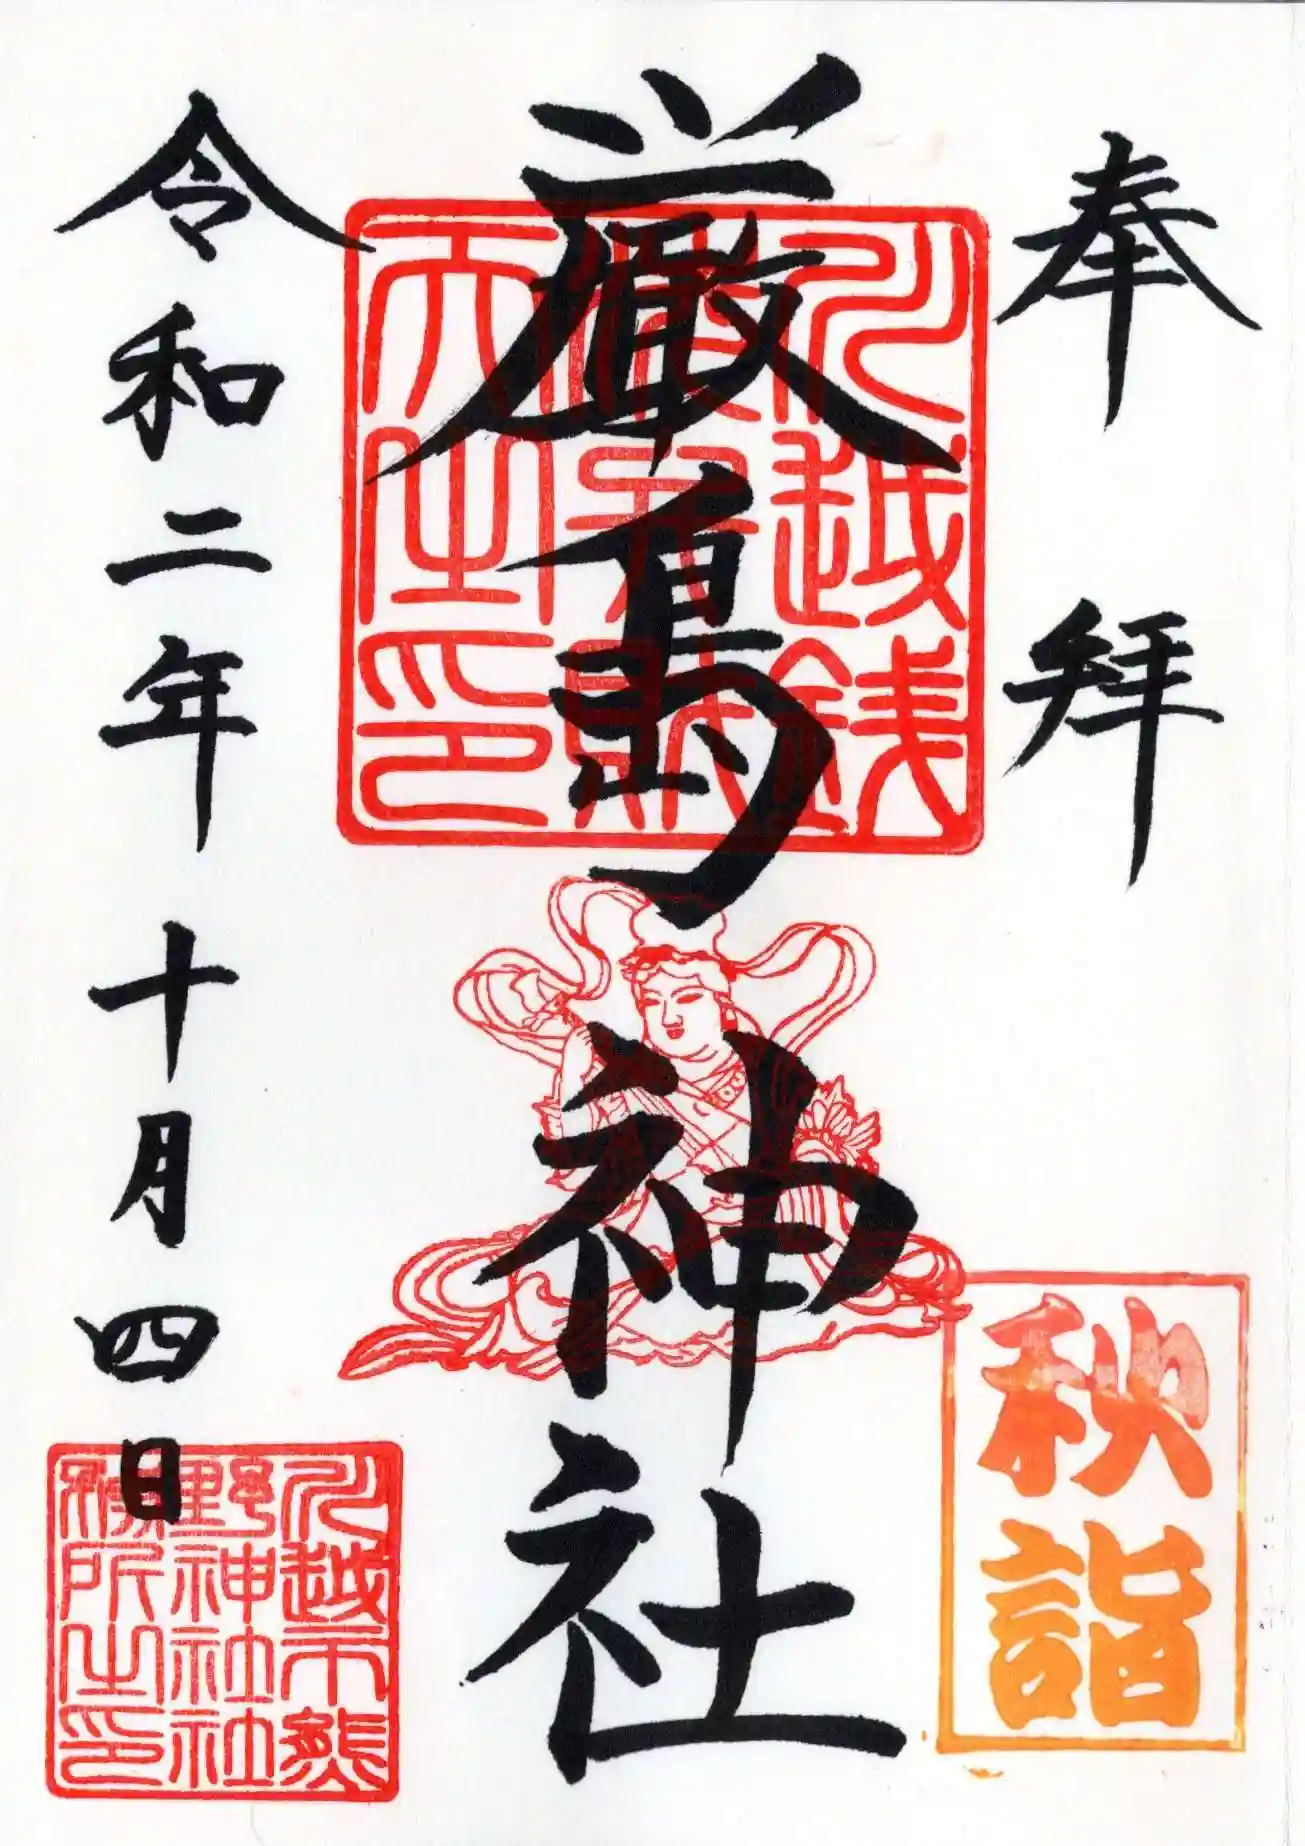 奉拝
厳島神社
令和二年十月四日
川越銭
洗弁財
天之印
秋詣
川越市熊
野神社社
務所之印